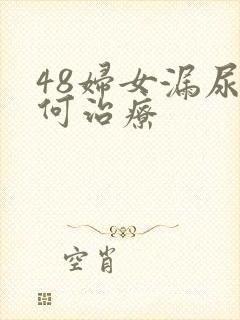 48婦女漏尿
何治療
空肖